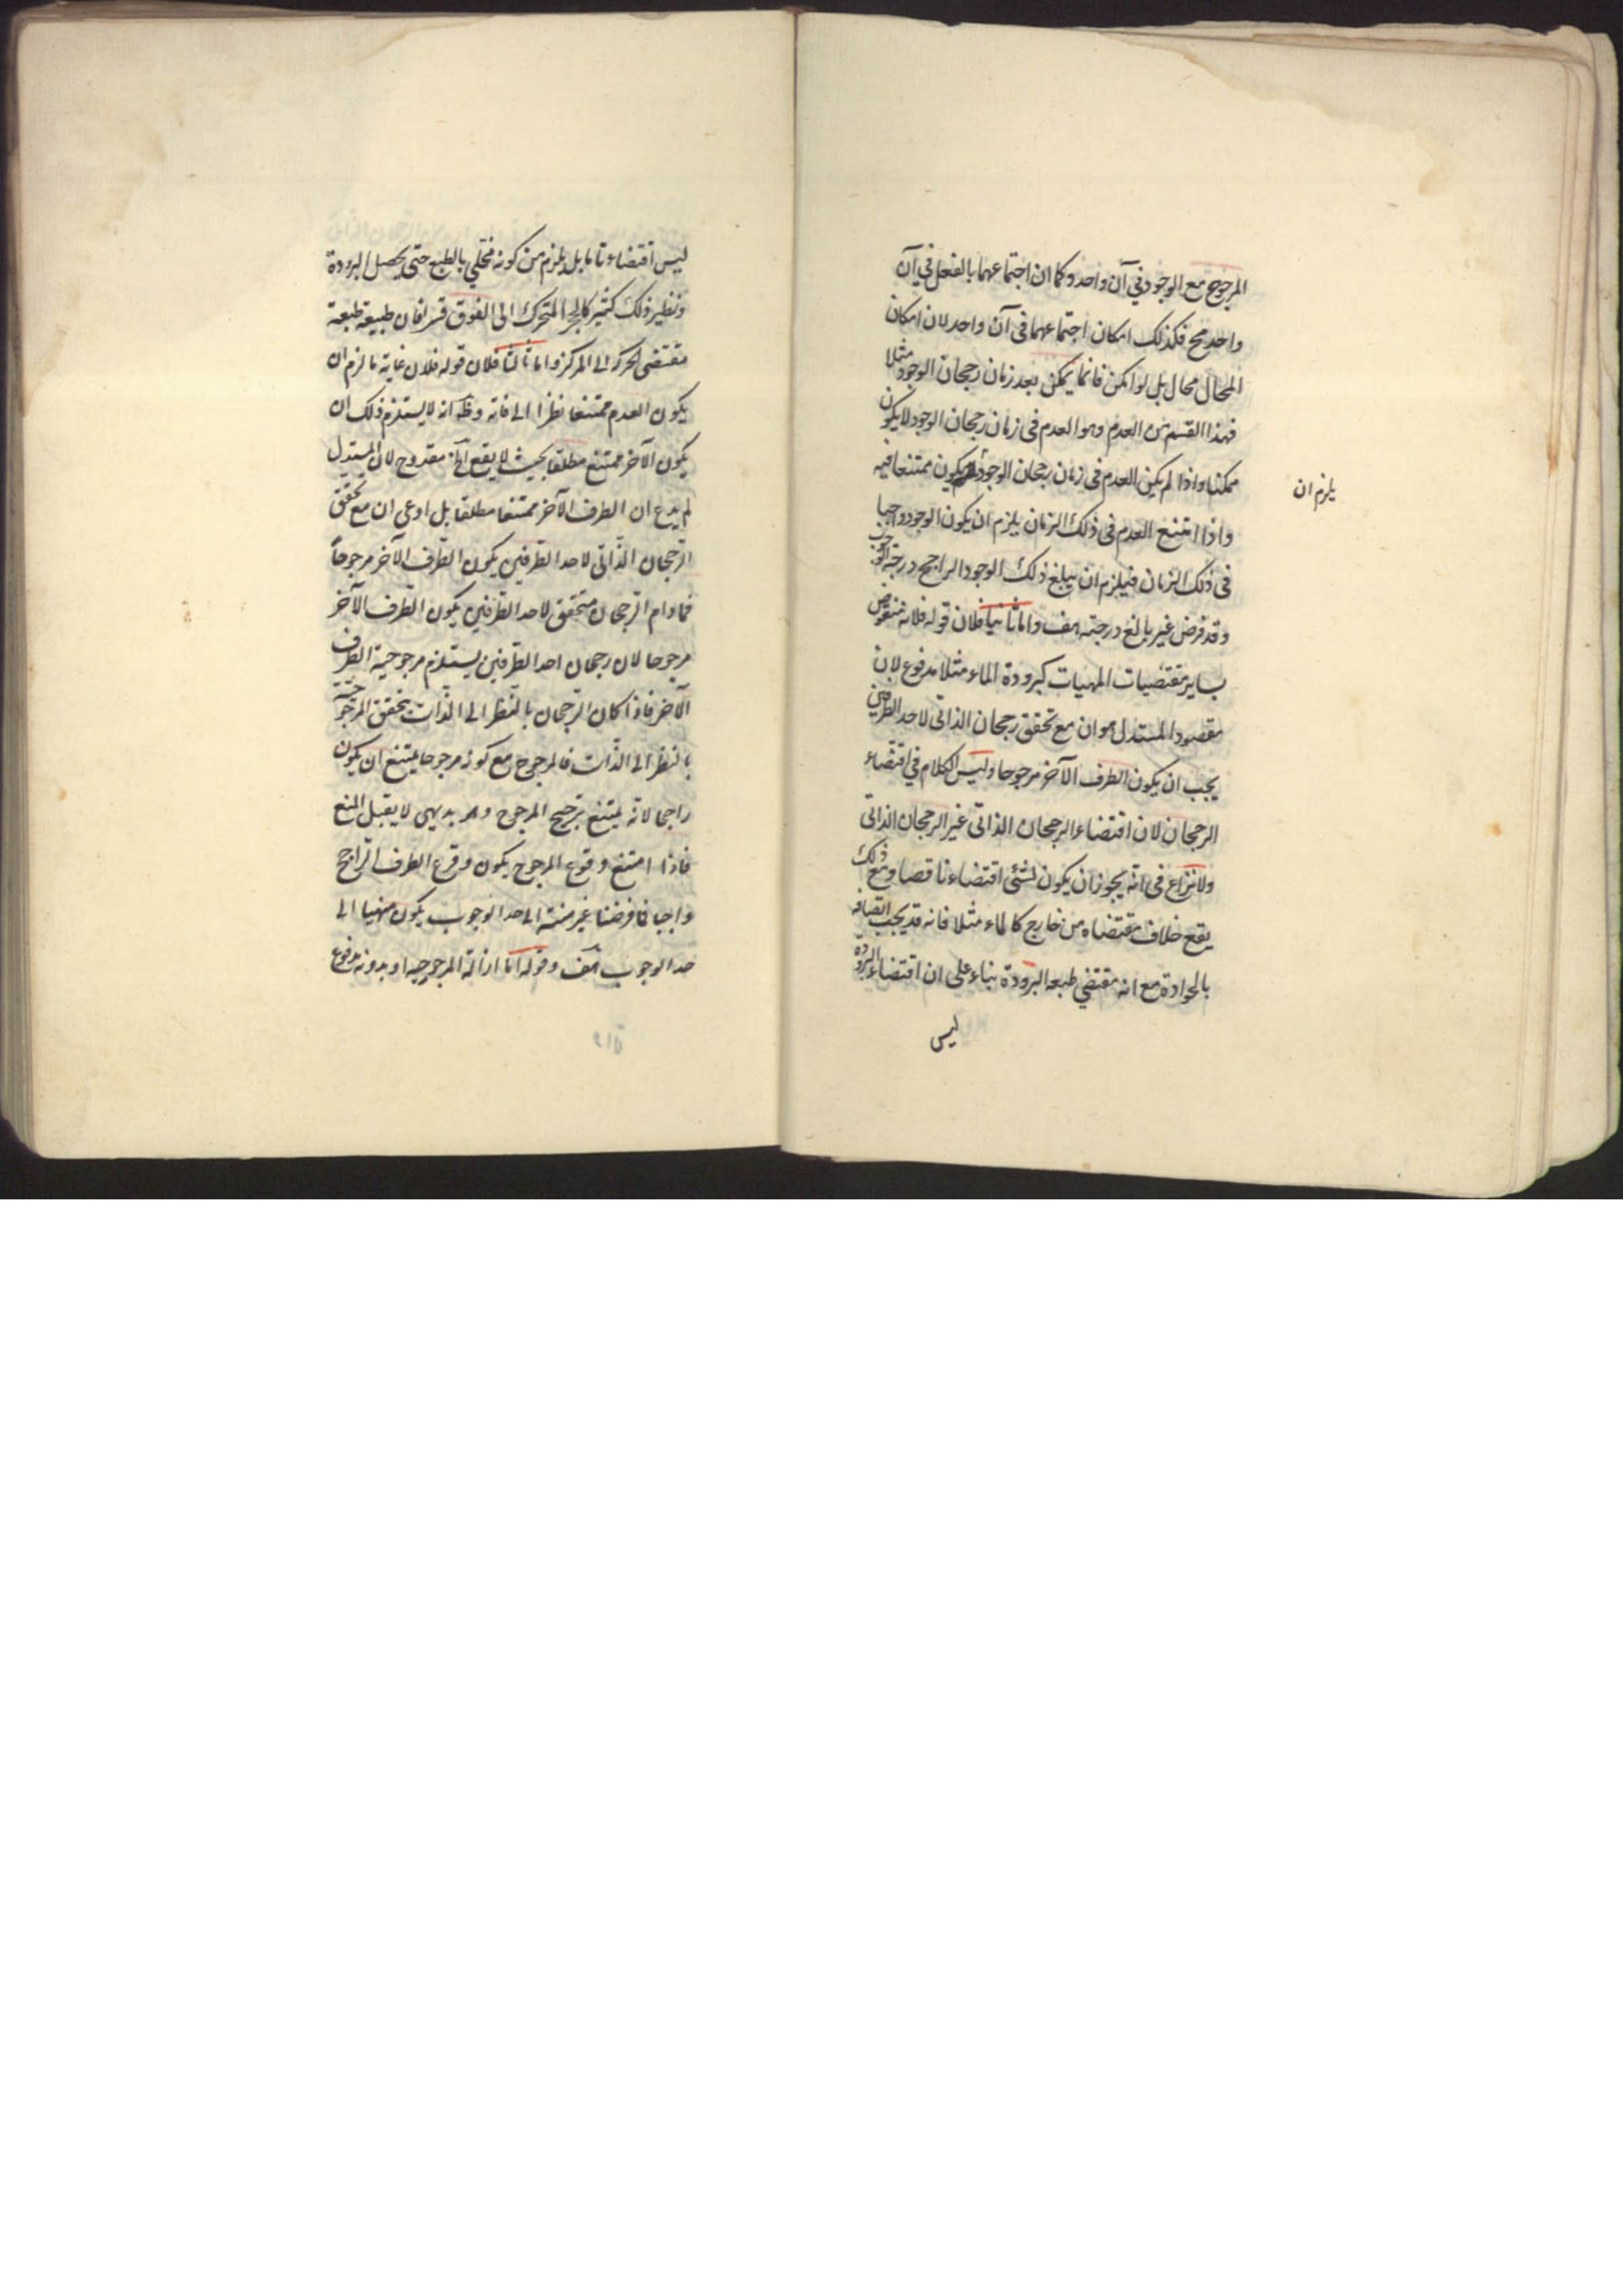 المرجوح مع الوجود في آن واحد وكما ان اجتماعهما بالفعل في آن
واحد مح فكذلك امكان اجتماعهما في آن واحد لان امكان
المحال محال بل لو امكن فانما يمكن بعد زمان رجحان الوجود مثلا
فهذا القسم من العدم وهو العدم في زمان رجحان الوجود لا يكون
ممكنا واذا لم يكن العدم في زمان رجحان الوجود يكون ممتنعا فيه
يلزم ان
واذا امتنع العدم في ذلك الزمان يلزم ان يكون الوجود واجبا
في ذلك الزمان فيلزم ان يبلغ ذلك الوجود الراجح درجة الوجوب
وقد فرض غير بالغ درجته هف واما ثانيا فلان قوله فلانه منقوض
بساير مقتضيات المهيات كبرودة الماء مثلا مدفوع لان
مقصود المستدل هو ان مع تحقق رجحان الذاتى لاحد الطرفين
يجب ان يكون الطرف الآخر مرجوحا وليس الكلام في اقتضاء
الرجحان لان اقتضاء الرجحان الذاتى غير الرجحان الذاتى
ولا نزاع في انه يجوز ان يكون لشئ اقتضاء ناقصا ومع ذلك
يقع خلاف مقتضاه من خارج كالماء مثلا فانه قد يجب اتصافه
بالحرارة مع انه مقتضي طبعه البرودة بناء على ان اقتضاء البرودة
ليس
ليس اقتضاء تاما بل يلزم من كونه مخلي بالطبع حتى يحصل البرودة
ونظير ذلك كثير كالحجر المتحرك الى الفوق قسرا فان طبيعة طبعه
مقتضى الحركة الى المركز واما ثالثا فلان قوله فلان غاية ما لزم ان
يكون العدم ممتنعا نظرا الى ذاته وظ انه لا يستلزم ذلك ان
يكون الآخر ممتنع مطلقا بحيث لا يقع الخ مقدوح لان المستدل
لم يدع ان الطرف الآخر ممتنعا مطلقا بل ادعى ان مع تحقق
الرجحان الذّاتى لاحد الطرفين يكون الطرف الآخر مرجوحاً
فمادام الرجحان متحقق لاحد الطرفين يكون الطرف الآخر
مرجوحا لان رجحان احد الطرفين يستلزم مرجوحية الطرف
الآخر فاذا كان الرجحان بالنظر الى الذات يتحقق المرجوحية
بالنظر الى الذات فالمرجوح مع كونه مرجوحا يمتنع ان يكون
راجحا لانه يمتنع ترجيح المرجوح وهو بديهى لا يقبل المنع
فاذا امتنع وقوع المرجوح يكون وقوع الطرف الراجح
واجبا فما فرضنا غير منته الى حد الوجوب يكون منهيا الى
حد الوجوب هف وقوله اما ازالة المرجوحيه او بدونه مدفوع